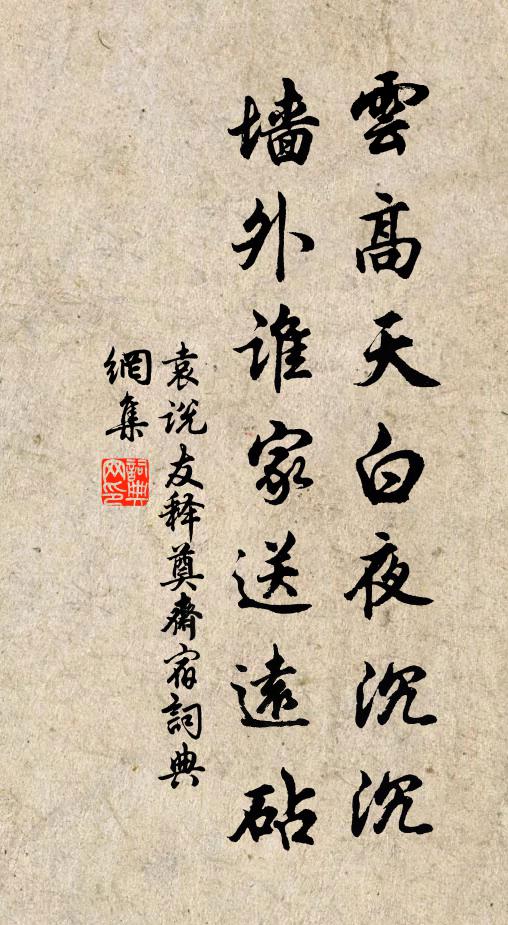 雲高天白夜沉沉
墻外誰家送遠砧
袁说友释奠齋宿詞典
網集
詞典
网印